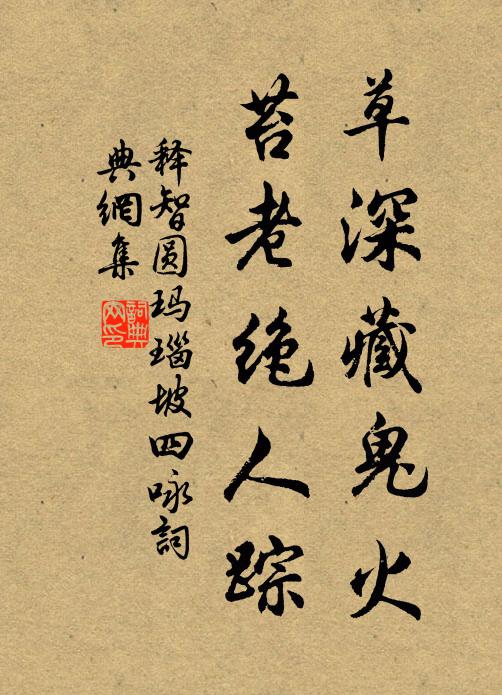 草深藏鬼火
苔老绝人踪
释智圆玛瑙坡四咏詞
典網集
詞典
网印